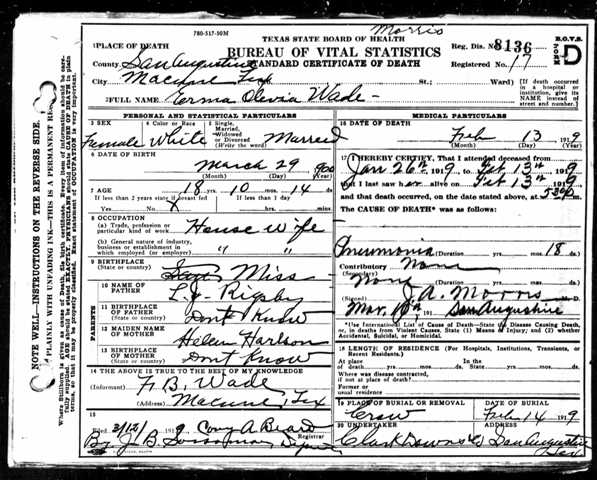 780-517-50M
Morris
TEXAS STATE BOARD OF HEALTH
BUREAU OF VITAL STATISTICS
STANDARD CERTIFICATE OF DEATH
Reg. Dis. No. 8136
Registered No. 17
B.O.V.S.
FORM
D
1 PLACE OF DEATH
County San Augustine
City Macune Tex St.; Ward)
[If death occurred in a hospital or institution, give its NAME instead of street and number.]
2 FULL NAME Erma Olevia Wade
PERSONAL AND STATISTICAL PARTICULARS
3 SEX Female
4 Color or Race White
5 Single, Married, Widowed or Divorced (Write the word) Married
6 DATE OF BIRTH
March 29 1900
(Month) (Day) (Year)
7 AGE 18 yrs. 10 mos. 14 ds.
If less than 2 years state if breast fed If less than 1 day
Yes. No. X hrs. min.
8 OCCUPATION
(a) Trade, profession or particular kind of work House wife
(b) General nature of industry, business or establishment in which employed (or employer) " "
9 BIRTHPLACE
(State or country) Miss
PARENTS
10 NAME OF FATHER L.J. Rigsby
11 BIRTHPLACE OF FATHER
(State or country) Dont Know
12 MAIDEN NAME OF MOTHER Helen Harlson
13 BIRTHPLACE OF MOTHER
(State or country) Dont Know
14 THE ABOVE IS TRUE TO THE BEST OF MY KNOWLEDGE
(Informant) F. B. Wade
(Address) Macune, Tex
15
Filed 3/12/ 1919 Cony A Beard
Registrar
By J B Deputy
MEDICAL PARTICULARS
16 DATE OF DEATH
Feb 13 1919
(Month) (Day) (Year)
17 I HEREBY CERTIFY, That I attended deceased from
Jan 26th, 1919, to Feb 13th 1919
that I last saw her alive on Feb 13th 1919
and that death occurred, on the date stated above, at m.
The CAUSE OF DEATH* was as follows:
Pneumonia (Duration yrs. mos. 18 ds.
Contributory None
(Secondary)
None (Duration yrs. mos. ds.
(Signed) J A. Morris
Mar. 10th, 191 San Augustine
*Use International List of Cause of Death—State the Disease Causing Death, or, in deaths from Violent Causes, State (1) Means of Injury; and (2) whether Accidental, Suicidal, or Homicidal.
18 LENGTH OF RESIDENCE (For Hospitals, Institutions, Transients, or Recent Residents.)
At place of death yrs. mos. ds. In the State yrs. mos. ds.
Where was disease contracted,
if not at place of death?
Former or
usual residence
19 PLACE OF BURIAL OR REMOVAL DATE OF BURIAL
Crow Feb 14 1919
20 UNDERTAKER ADDRESS
Clark Downs Co San Augustine
Tex.
NOTE WELL—INSTRUCTIONS ON THE REVERSE SIDE.